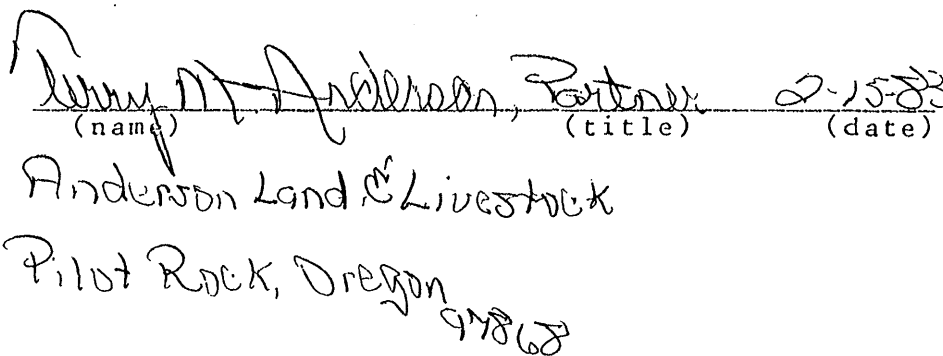 Terry M. Anderson, Partner 2-15-83
(name) (title) (date)
Anderson Land & Livestock
Pilot Rock, Oregon
97868